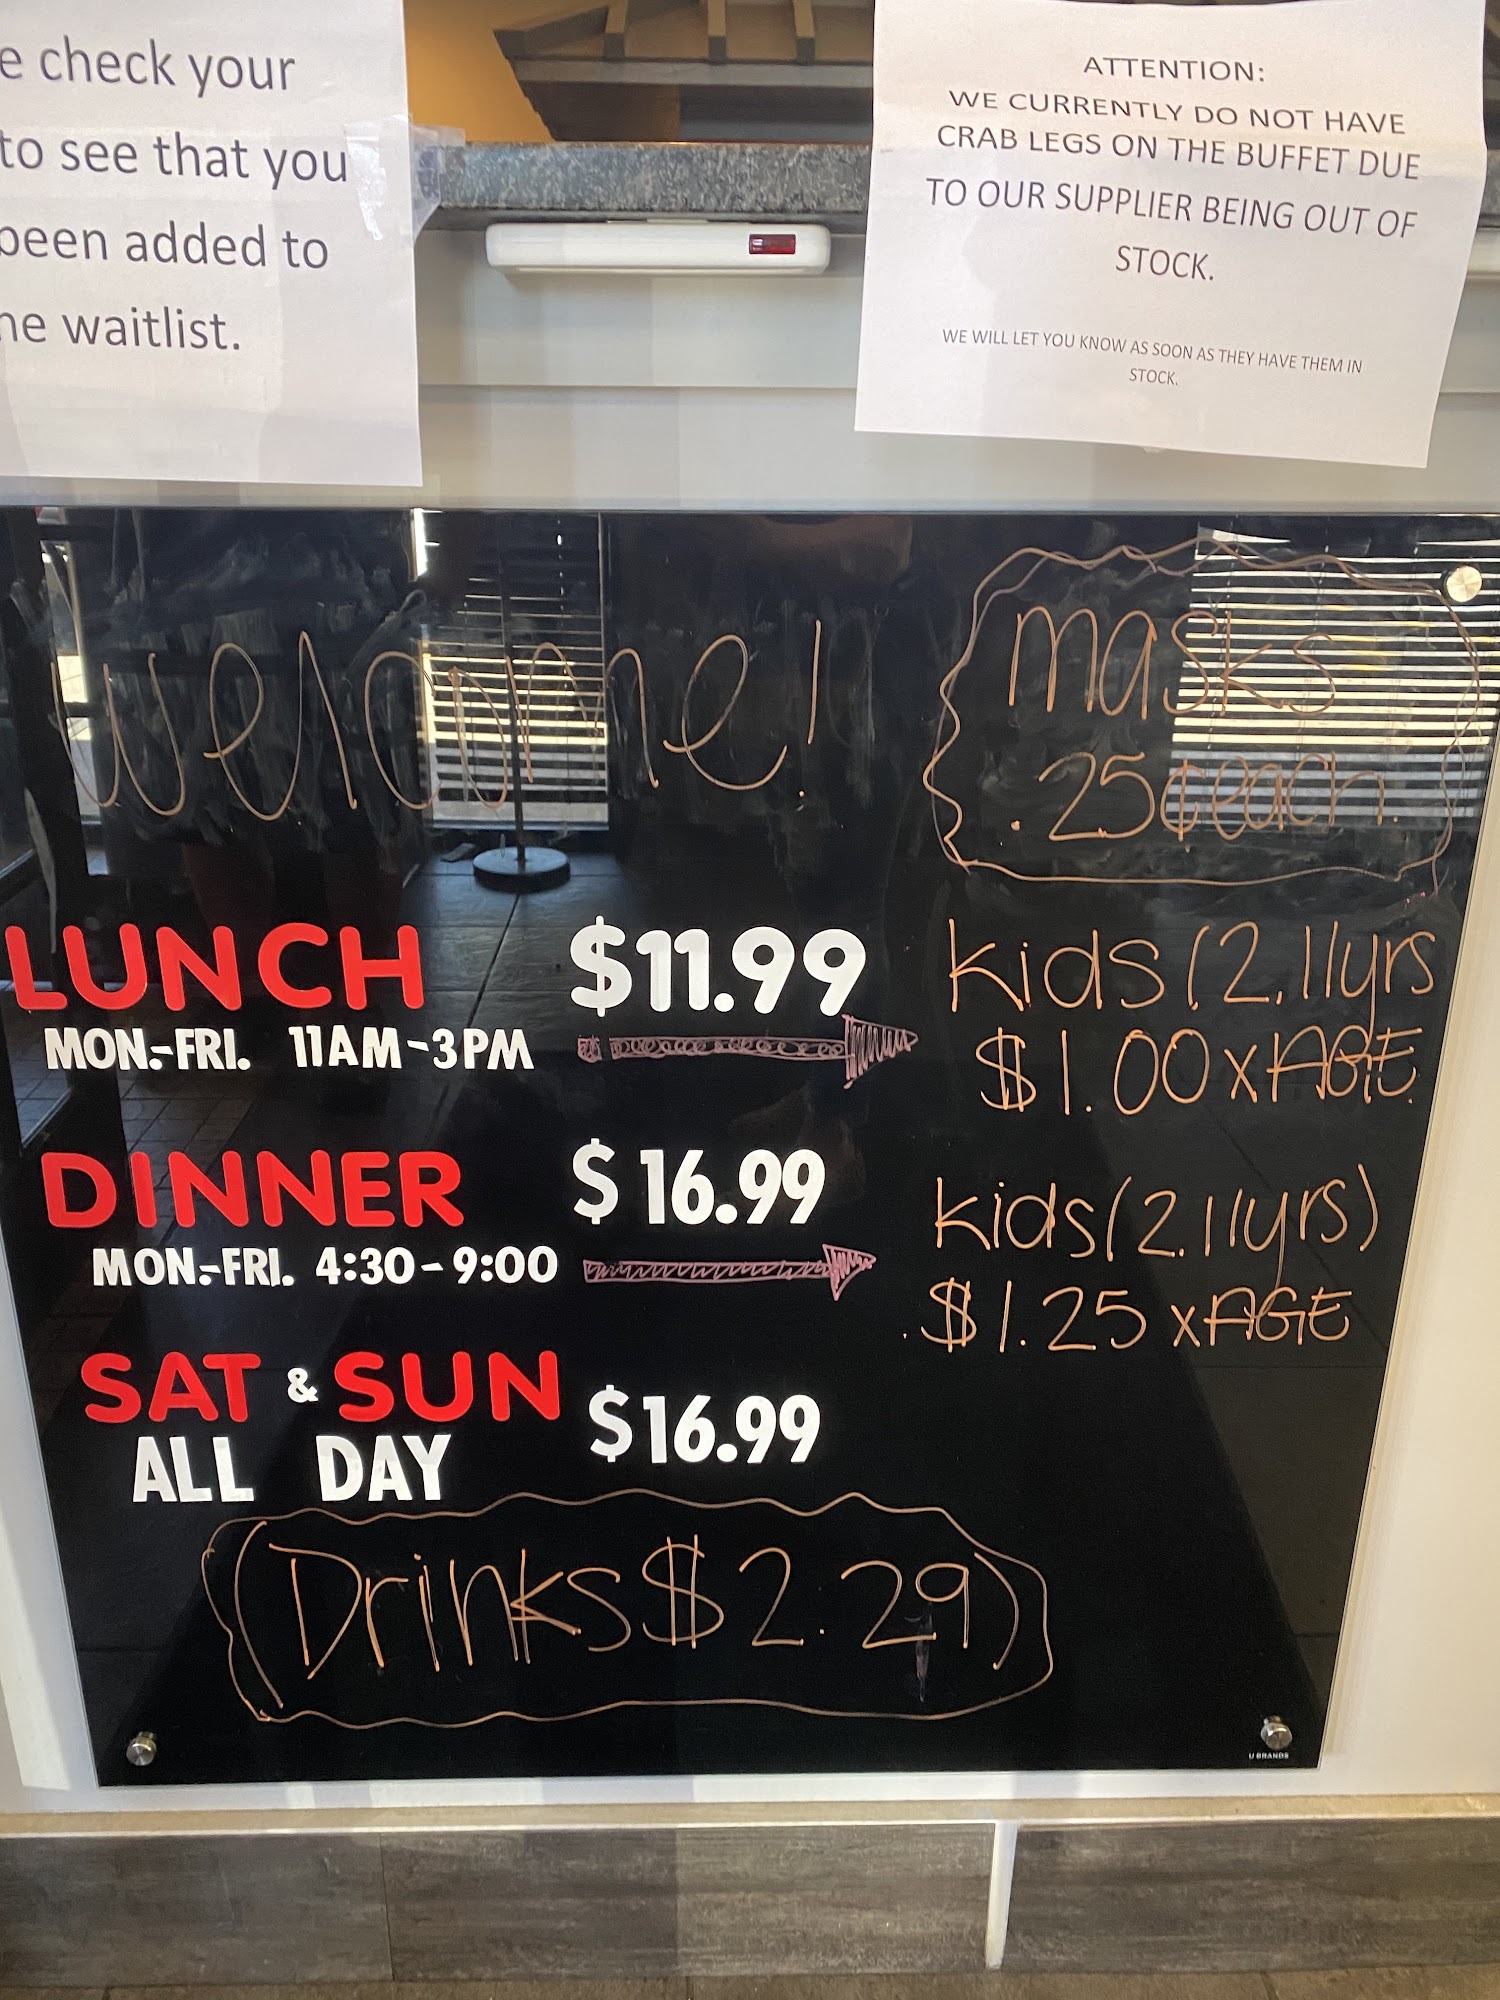 e check your
to see that you
been added to
he waitlist.
ATTENTION:
WE CURRENTLY DO NOT HAVE
CRAB LEGS ON THE BUFFET DUE
TO OUR SUPPLIER BEING OUT OF
STOCK.
WE WILL LET YOU KNOW AS SOON AS THEY HAVE THEM IN
STOCK.
Welcome!
masks
.25¢ each.
LUNCH $11.99
MON.-FRI. 11AM-3PM
kids (2.11yrs
$1.00 x AGE
DINNER $16.99
MON.-FRI. 4:30-9:00
kids (2.11yrs)
$1.25 x AGE
SAT & SUN $16.99
ALL DAY
(Drinks $2.29)
U BRANDS